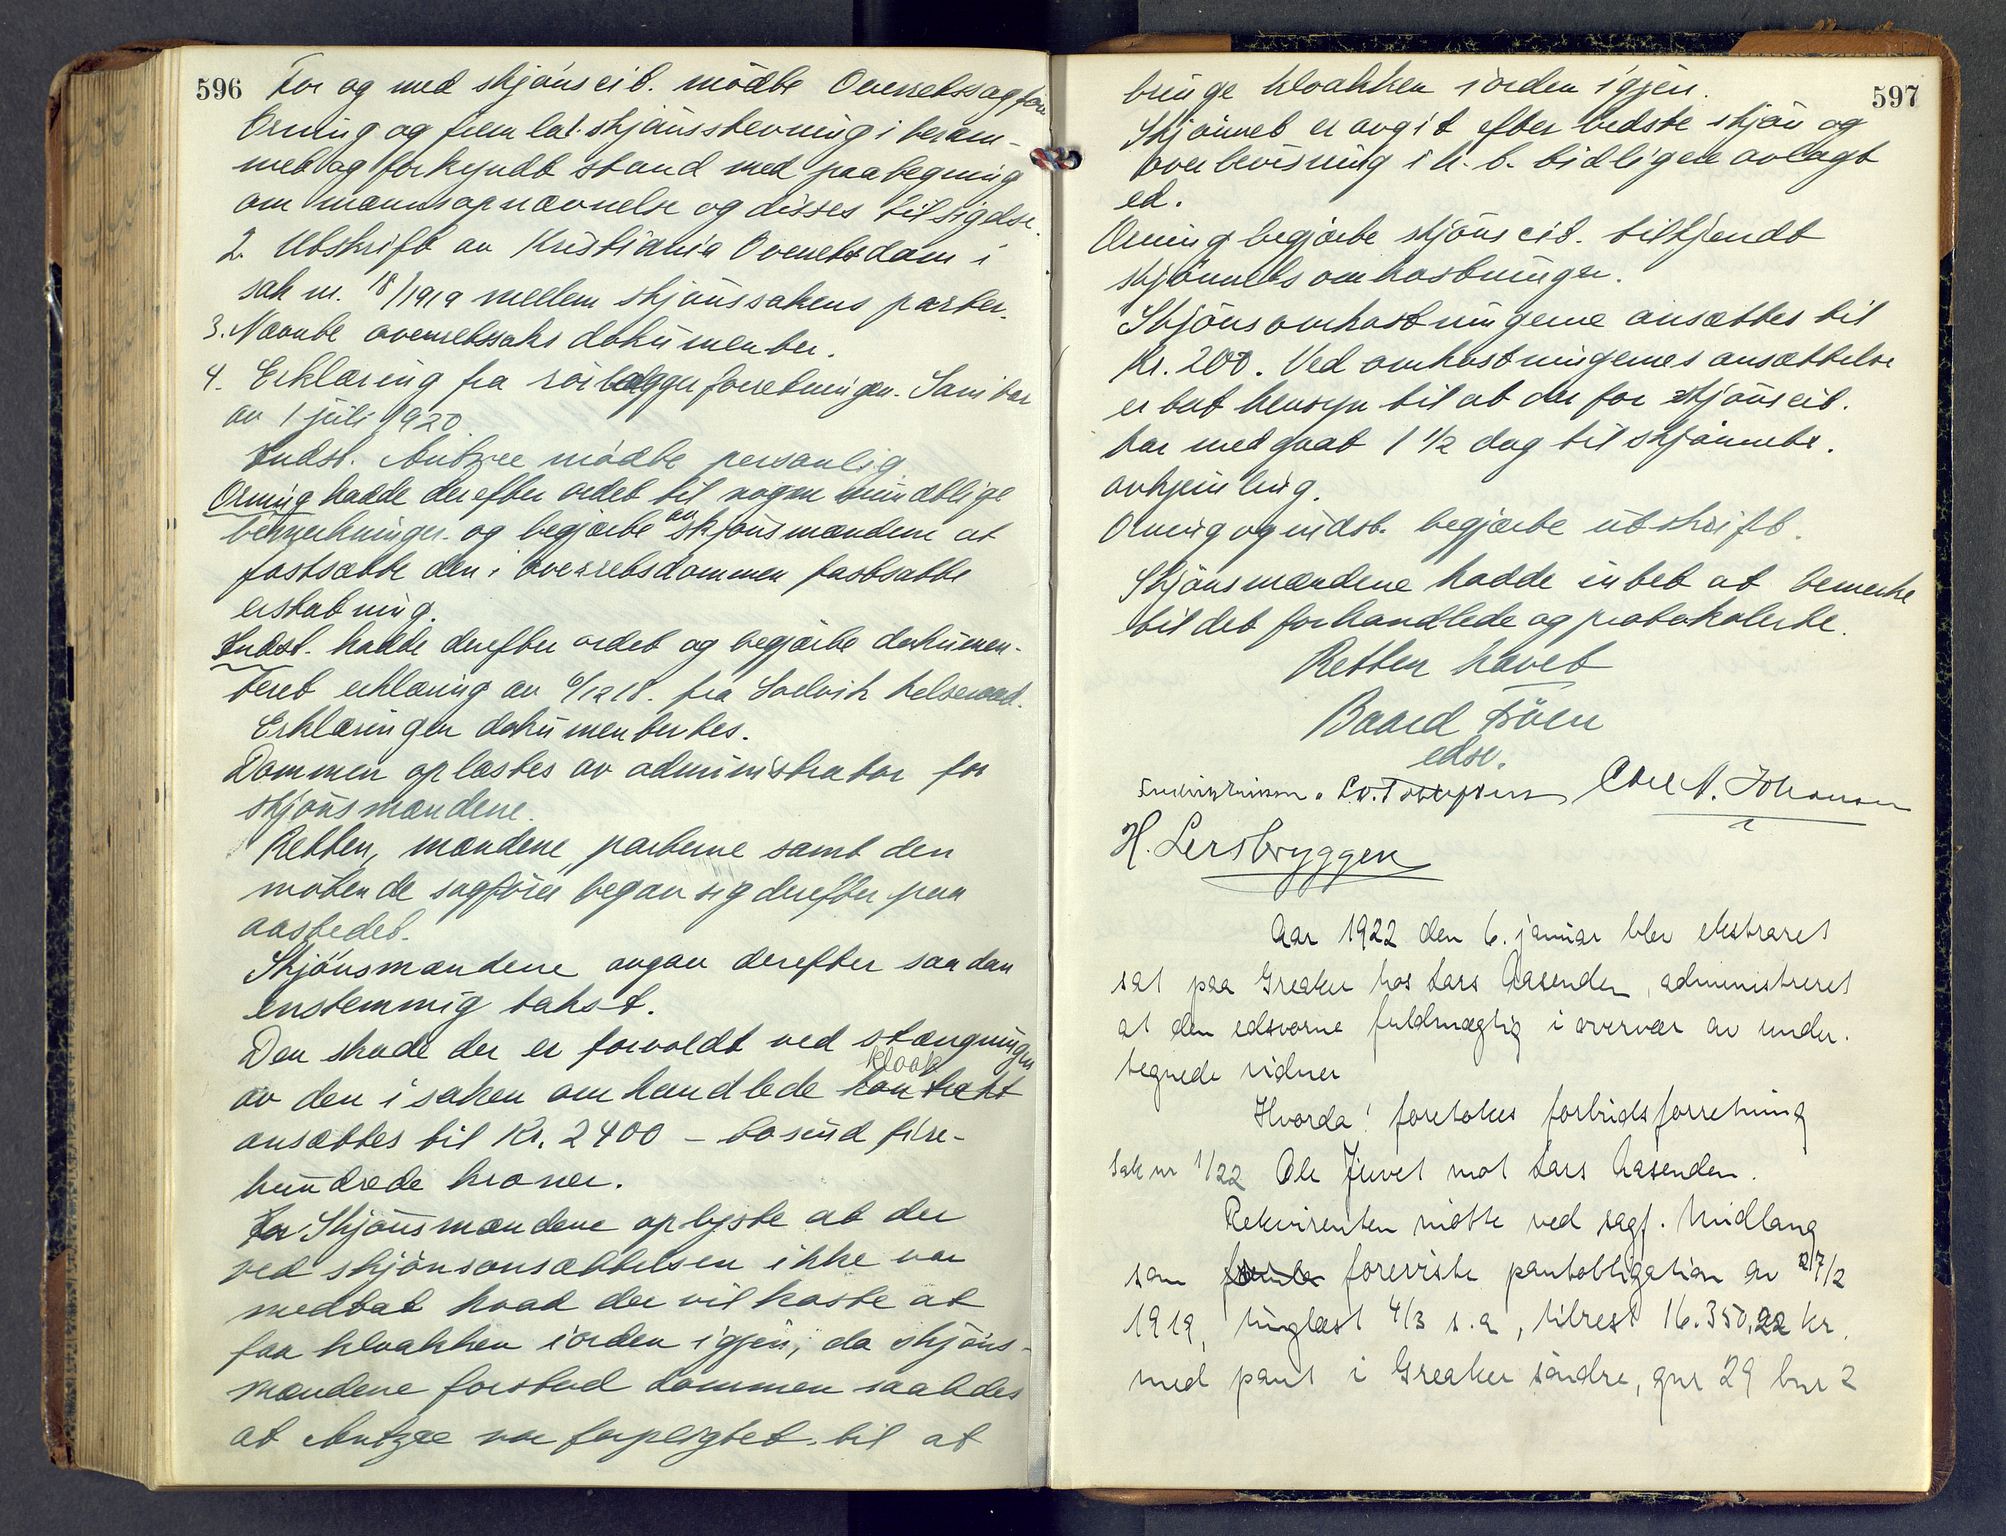 596
For og med skjønscit. mødte Overretssagfører
Orning og fremla 1. skjønsstevning i beram-
met og forkyndt stand med paategning
om mannsopnævnelse og disses tilsigelse.
2. Utskrift av Kristiania Overretsdom i
sak nr. 18/1919 mellem skjønssakens parter.
3. Nævnte overretssaks dokumenter.
4. Erklæring fra rörlæggerforretningen. Sanitær
av 1 juli 1920.
Indst. Antzee mødte personlig
Orning hadde derefter ordet til nogen mundtlige
bemerkninger og begjærte av skjønsmændene at
fastsætte den i overretsdommen fastsatte
erstatning.
Indst. hadde derefter ordet og begjærte dokumen-
teret erklæring av 6/12 18. fra helseraad.
Erklæringen dokumentertes.
Dommen oplæstes av administrator for
skjønsmændene.
Retten, mændene, parterne samt den
møtende sagfører begav sig derefter paa
aastedet.
Skjønsmændene avgav derefter saadan
enstemmig takst.
Den skade der er forvoldt ved stængningen
kloak
av den i saken omhandlede kontrakt
ansættes til Kr. 2400 – to tusind fire-
hundrede kroner.
Skjønsmændene oplyste at der
ved skjønsansættelsen ikke var
medtat hvad der vil koste at
faa kloakken i orden igjen, da skjøns-
mændene forstod dommen saaledes
at Antzee var forpligtet til at
597
bringe kloakken i orden igjen.
Skjønnet er avgit efter bedste skjøn og
overbevisning i h. t. tidligere avlagt
ed.
Orning begjærte skjønscit. tilkjendt
skjønnets omkostninger.
Skjønsomkostningerne ansættes til
Kr. 200. Ved omkostningernes ansættelse
er tat hensyn til at der for skjønscit.
har medgaat 1 1/2 dag til skjønnets
avhjemling.
Orning og indst. begjærte utskrift.
Skjønsmændene hadde intet at bemerke
til det forhandlede og protokolerte.
Retten hævet
Baard Bøen
edsv.
N. Johansen
H. Lersbryggen
Aar 1922 den 6. januar blev ekstraret
sat paa Greaker hos Lars Aasenden, administreret
at den edsvorne fuldmægtig i overvær av under-
tegnede vidner
Hvorda! foretokes forbudsforretning
Sak nr 1/22 Ole Juvet mot Lars Aasenden.
Rekvirenten møtte ved sagf. Midlang
som foreviste pantobligation av 27/2
1919, tinglæst 4/3 s.a, tilrest 16.350,22 kr.
med pant i Greaker søndre, gnr 29 bnr 2